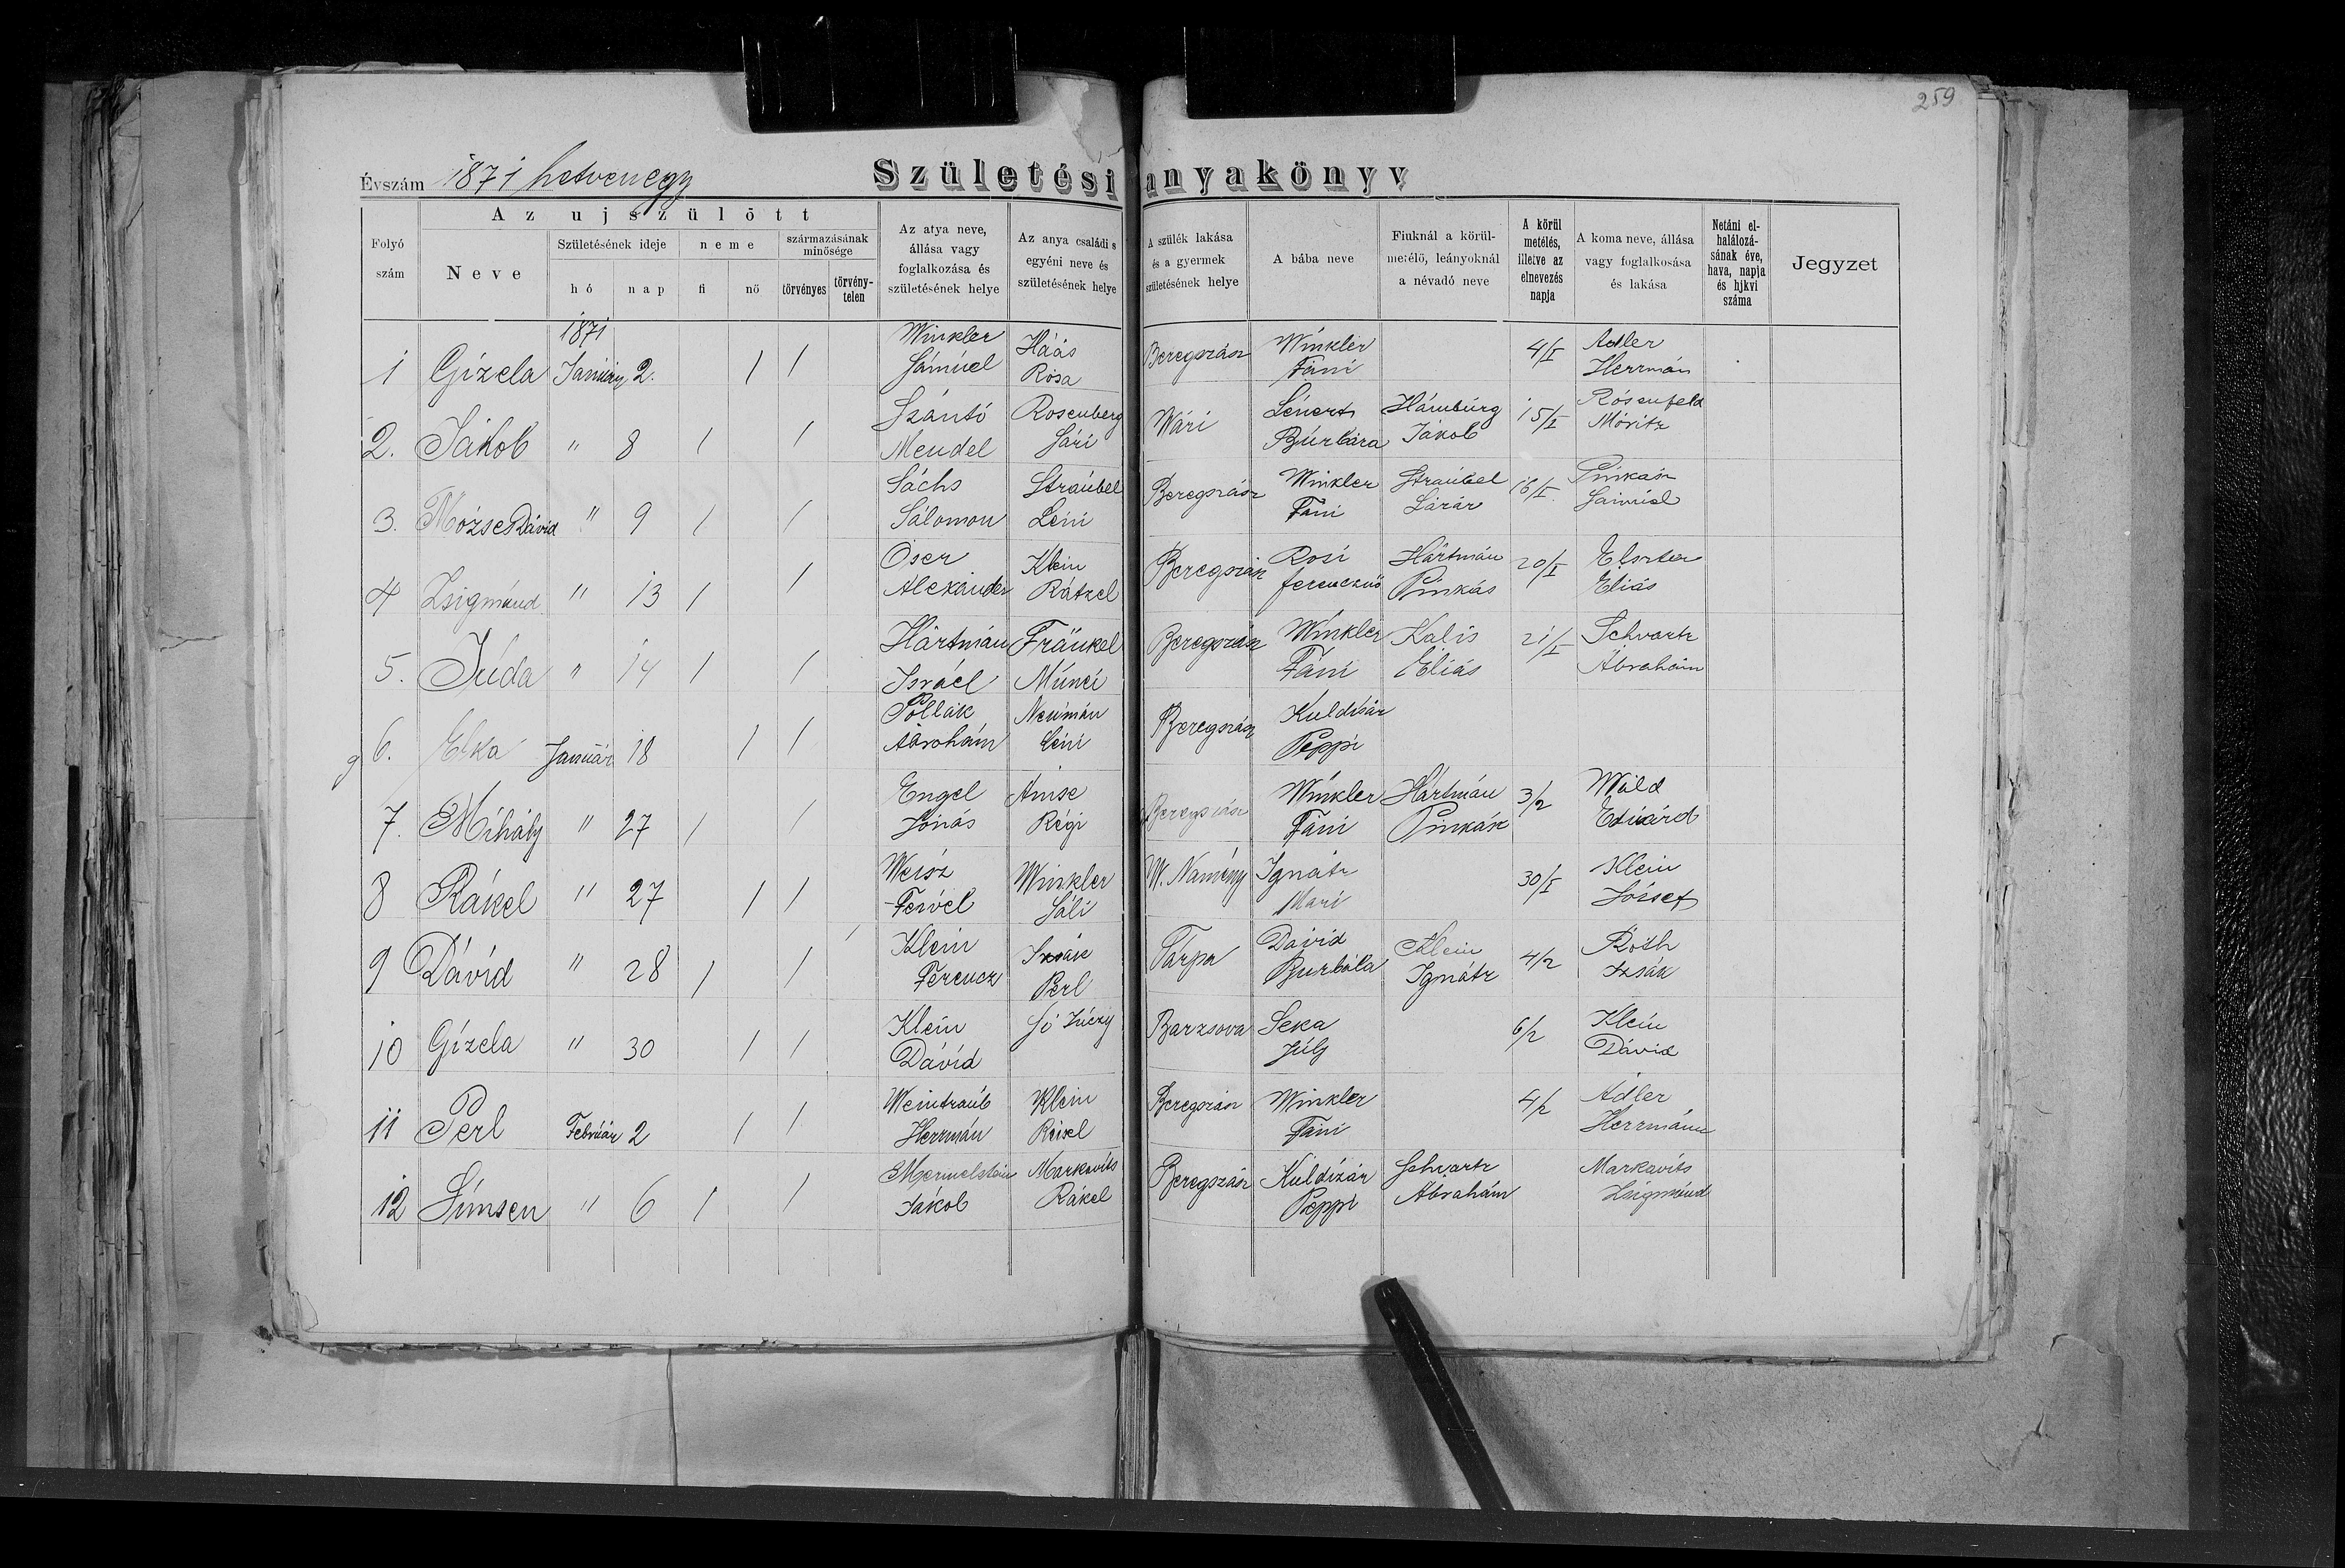 259
Évszám 1871 hetvenegy Születési anyakönyv
Folyó szám
Az ujszülött
Neve
Születésének ideje
hó nap
neme
fi nő
származásának minősége
törvényes törvény-telen
Az atya neve, állása vagy foglalkozása és születésének helye
Az anya családi s egyéni neve és születésének helye
A szülék lakása és a gyermek születésének helye
A bába neve
Fiuknál a körül-metélő, leányoknál a névadó neve
A körül metélés, illetve az elnevezés napja
A koma neve, állása vagy foglalkosása és lakása
Netáni el-halálozá-sának éve, hava, napja és hjkvi száma
Jegyzet
1871
1 Gizela Január 2. / / Winkler Sámuel Háás Rósa Beregszász Winkler Fáni 4/I Adler Herrmán
2. Jákob " 8 / / Szántó Mendel Rosenberg Sári Wári Lénert Búrbára Hámbúrg Jákob 15/I Rósenfeld Móritz
3. Mózses Dávid " 9 / / Sáchs Sálomon Straúbel Léni Beregszász Winkler Fáni Straúbel Lázár 16/I. Pinkász Sámúel
4 Zsigmónd " 13 / / Óser Alexánder Klein Rátzel Beregszász Rosi ferencznő Hártmán Pinkás 20/I Elszter Eliás
5. Júda " 14 / / Hártmán Isráel Fränkel Múnci Beregszász Winkler Fáni Kalis Eliás 21/I Schvartz Ábrahám
g 6. Elka Január 18 / / Póllák Ábrohám Neúmán Léni Beregszász Kuldisár Peppi
7. Mihály " 27 / / Engel Jónás Ánise Régi Beregszász Winkler Fáni Hártmán Pinkász 3/2 Wáld Edúárd
8 Rákel " 27 / / Weisz Feivel Winkler Sáli W. Namény Ignátz Mari 30/I Klein József
9 Dávid " 28 / / Klein Ferencz Izsák Perl Tárpa Dávid Burbála Klein Ignátz 4/2 Róth Izsák
10 Gizela " 30 / / Klein Dávid Jó Júczy Barzsova Seka Júly 6/2 Klein Dávid
11 Perl Február 2 / / Weintraúb Herrmán Klein Reisel Beregszász Winkler Fáni 4/2 Adler Herrmánn
12 Simsen " 6 / / Mermelstein Jákob Markovits Rákel Beregszász Kuldizár Peppi Schvartz Ábrahám Markavits Zsigmónd